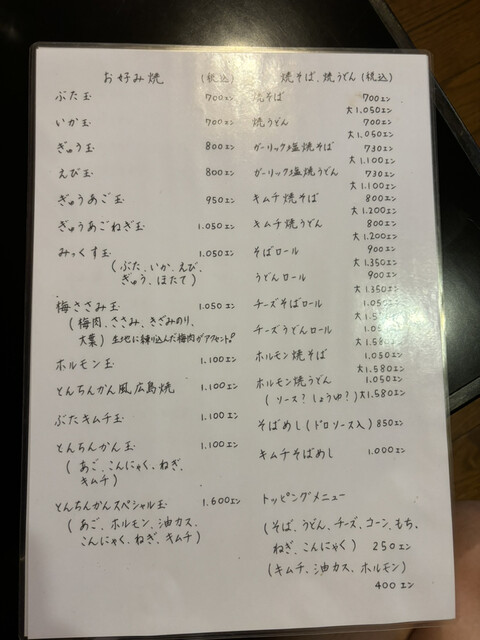 お好み焼 (税込)
ぶた玉 700エン
いか玉 700エン
ぎゅう玉 800エン
えび玉 800エン
ぎゅうあご玉 950エン
ぎゅうあごねぎ玉 1.050エン
みっくす玉 1.050エン
(ぶた、いか、えび、
ぎゅう、ほたて)
梅ささみ玉 1.050エン
(梅肉、ささみ、きざみのり、
大葉) 生地に練り込んだ梅肉がアクセント。
ホルモン玉 1.100エン
とんちんかん風広島焼 1.100エン
ぶたキムチ玉 1.100エン
とんちんかん玉 1.100エン
(あご、こんにゃく、ねぎ、
キムチ)
とんちんかんスペシャル玉 1.600エン
(あご、ホルモン、油カス、
こんにゃく、ねぎ、キムチ)
焼そば、焼うどん (税込)
焼そば 700エン
大1.050エン
焼うどん 700エン
大1.050エン
ガーリック塩焼そば 730エン
大1.100エン
ガーリック塩焼うどん 730エン
大1.100エン
キムチ焼そば 800エン
大1.200エン
キムチ焼うどん 800エン
大1.200エン
そばロール 900エン
大1.350エン
うどんロール 900エン
大1.350エン
チーズそばロール 1.050エン
チーズうどんロール
ホルモン焼そば 1.050エン
大1.580エン
ホルモン焼うどん 1.050エン
(ソース?しょうゆ?) 大1.580エン
そばめし(ドロソース入) 850エン
キムチそばめし 1.000エン
トッピングメニュー
(そば、うどん、チーズ、コーン、もち、
ねぎ、こんにゃく) 250エン
(キムチ、油カス、ホルモン)
400エン